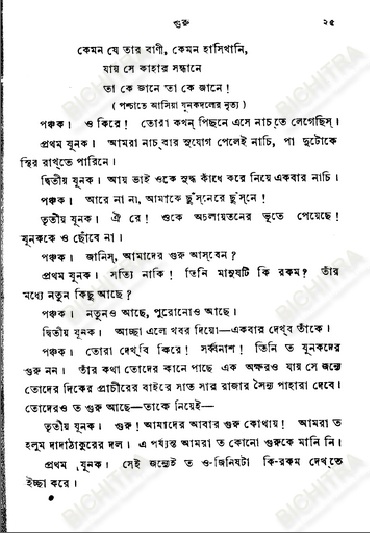 গুরু ২৫
কেমন যে তার বাণী, কেমন হাসিখানি,
যায় সে কাহার সন্ধানে
তা কে জানে তা কে জানে!
( পশ্চাতে আসিয়া যূনকদলের নৃত্য )
পঞ্চক। ও কিরে! তোরা কখন্ পিছনে এসে নাচ্‌তে লেগেছিস্।
প্রথম যূনক। আমরা নাচ্‌বার সুযোগ পেলেই নাচি, পা দুটোকে
স্থির রাখ্‌তে পারিনে।
দ্বিতীয় যূনক। আয় ভাই ওকে সুদ্ধ কাঁধে করে নিয়ে একবার নাচি।
পঞ্চক। আরে না না, আমাকে ছুঁস্‌নেরে ছুঁস্‌নে!
তৃতীয় যূনক। ঐ রে! ওকে অচলায়তনের ভূতে পেয়েছে!
যূনককে ও ছোঁবে না।
পঞ্চক। জানিস্, আমাদের গুরু আস্‌বেন?
প্রথম যূনক। সত্যি নাকি! তিনি মানুষটি কি রকম? তাঁর
মধ্যে নতুন কিছু আছে?
পঞ্চক। নতুনও আছে, পুরোনোও আছে।
দ্বিতীয় যূনক। আচ্ছা এলে খবর দিয়ো—একবার দেখ্‌ব তাঁকে।
পঞ্চক। তোরা দেখ্‌বি কিরে! সর্ব্বনাশ! তিনি ত যূনকদের
গুরু নন। তাঁর কথা তোদের কানে পাছে এক অক্ষরও যায় সে জন্যে
তোদের দিকের প্রাচীরের বাইরে সাত সার রাজার সৈন্য পাহারা দেবে।
তোদেরও ত গুরু আছে—তাকে নিয়েই—
তৃতীয় যূনক। গুরু! আমাদের আবার গুরু কোথায়! আমরা ত
হলুম দাদাঠাকুরের দল। এ পর্য্যন্ত আমরা ত কোনো গুরুকে মানি নি।
প্রথম যূনক। সেই জন্যেই ত ও-জিনিষটা কি-রকম দেখ্‌তে
ইচ্ছা করে।
BICHITRA